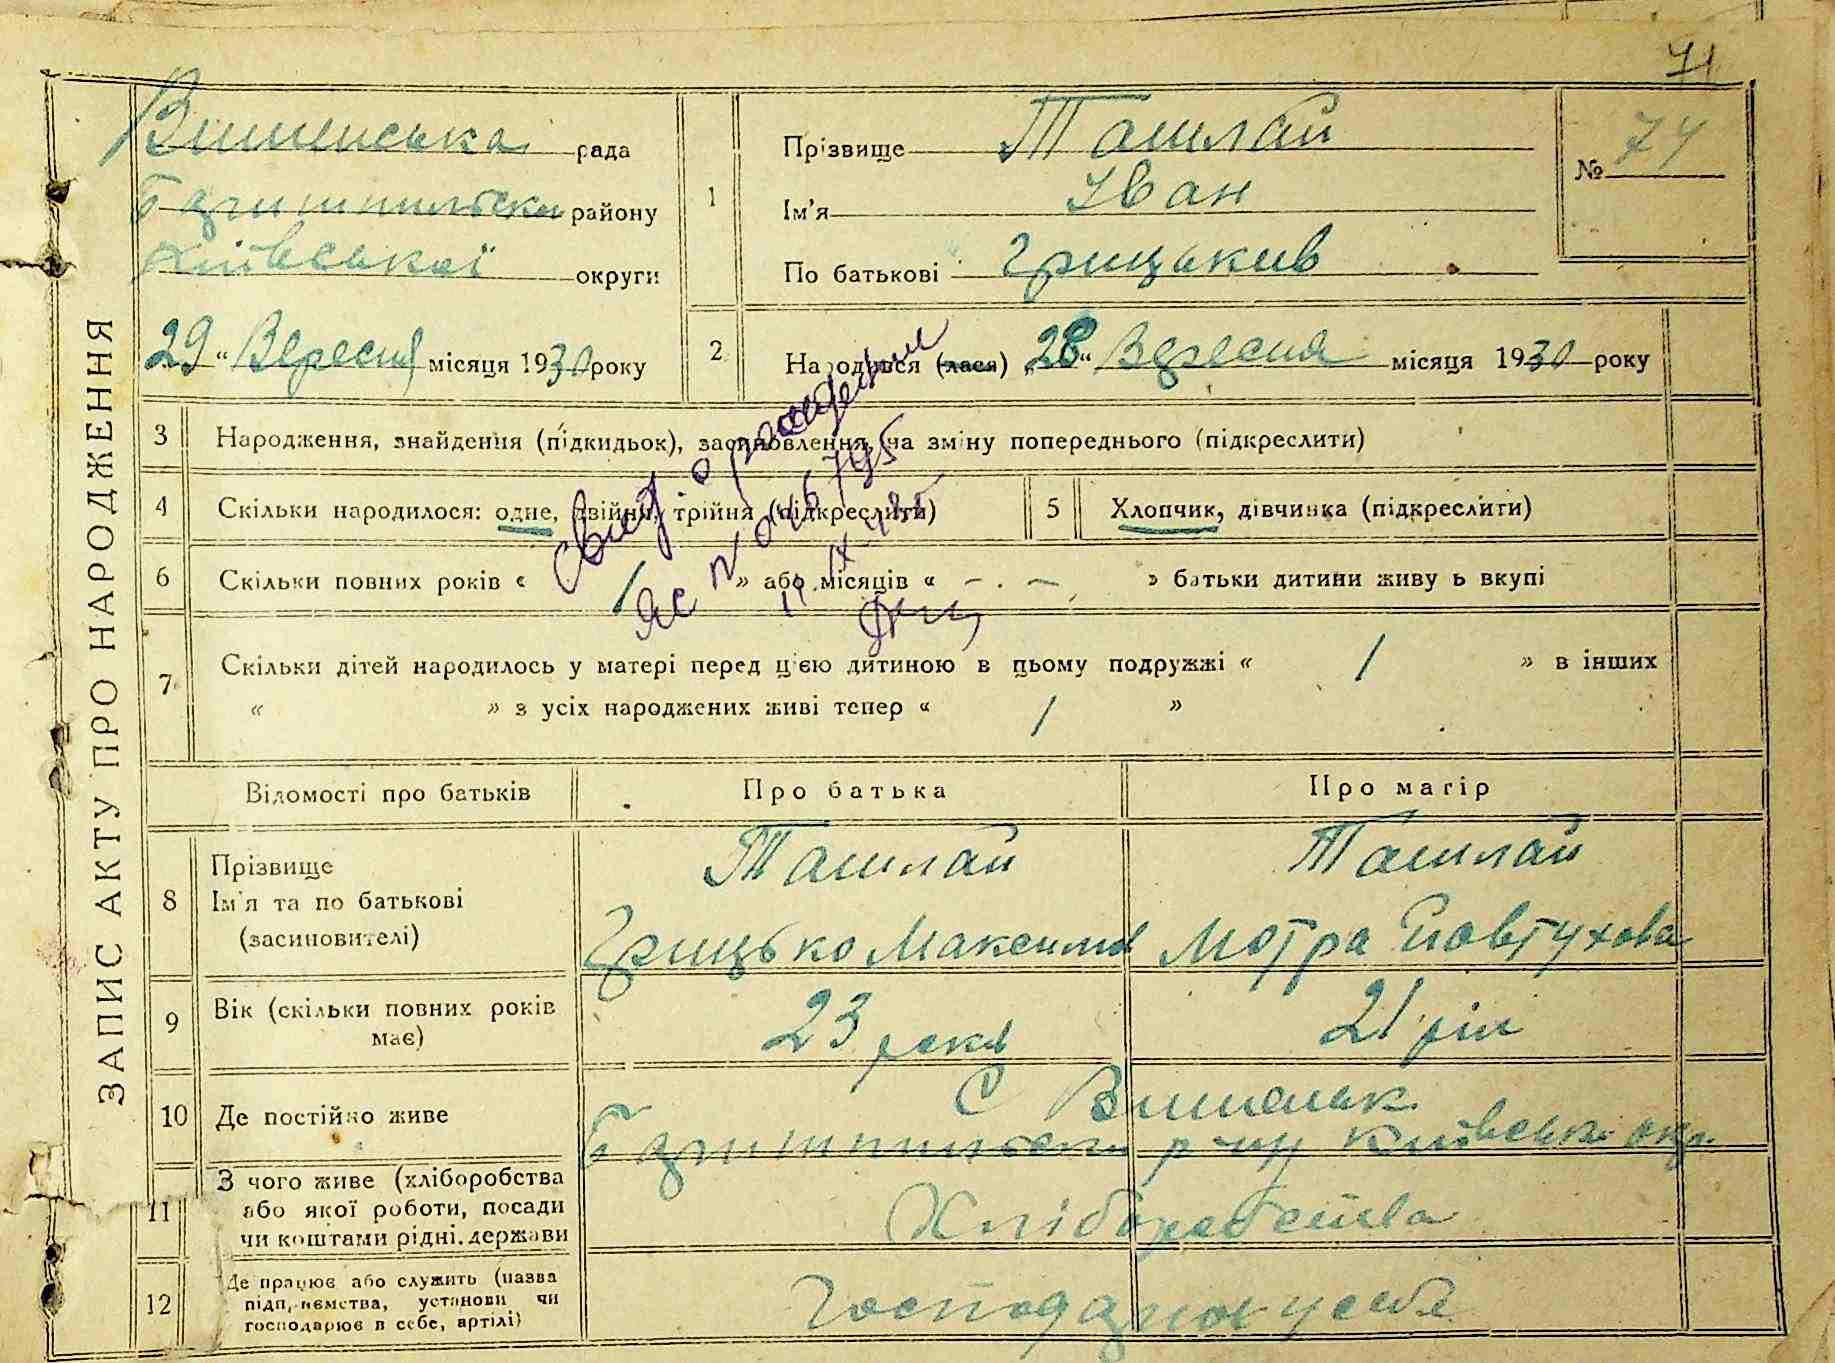 71
ЗАПИС АКТУ ПРО НАРОДЖЕННЯ
Вишеньська рада
району
Київської округи
29 "Вересня місяця 1930 року
1
Прізвище Ташлай
Ім'я Іван
По батькові Грицьків
№ 74
2
Народився (лася) "28" Вересня місяця 1930 року
3
Народження, знайдення (підкидьок), засиновлення на зміну попереднього (підкреслити)
4
Скільки народилося: одне, двійня, трійня (підкреслити)
5
Хлопчик, дівчинка (підкреслити)
6
Скільки повних років « 1 » або місяців « - . - » батьки дитини живуть вкупі
7
Скільки дітей народилось у матері перед цією дитиною в цьому подружжі « 1 » в інших
« » з усіх народжених живі тепер « 1 »
Свид. о рождении
ЯС № 046795
IX
Відомості про батьків
Про батька
Про матір
8
Прізвище
Ім'я та по батькові
(засиновителі)
Ташлай
Грицько Максимів
Ташлай
Мотра Явтухова
9
Вік (скільки повних років
має)
23 роки
21 рік
10
Де постійно живе
С Вишеньки
р-ну Київської окр.
11
З чого живе (хліборобства
або якої роботи, посади
чи коштами рідні, держави
Хліборобства
12
Де працює або служить (назва
підприємства, установи чи
господарює в себе, артілі)
Господарює у себе